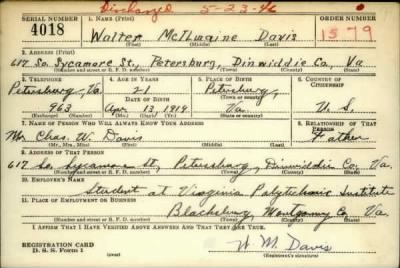 Discharged 5-23-46
SERIAL NUMBER 1. NAME (Print) ORDER NUMBER
4018 Walter McIlwaine Davis 1579
(First) (Middle) (Last)
2. ADDRESS (Print)
617 So. Sycamore St., Petersburg, Dinwiddie Co., Va.
(Number and street or R. F. D. number) (Town) (County) (State)
3. TELEPHONE 4. AGE IN YEARS 5. PLACE OF BIRTH 6. COUNTRY OF CITIZENSHIP
Petersburg, Va. 21 Petersburg,
DATE OF BIRTH (Town or county)
963 Apr. 13, 1919 Va. U. S.
(Exchange) (Number) (Mo.) (Day) (Yr.) (State or country)
7. NAME OF PERSON WHO WILL ALWAYS KNOW YOUR ADDRESS 8. RELATIONSHIP OF THAT PERSON
Mr. Chas. W. Davis Father
(Mr., Mrs., Miss) (First) (Middle) (Last)
9. ADDRESS OF THAT PERSON
617 So. Sycamore St., Petersburg, Dinwiddie Co., Va.
(Number and street or R. F. D. number) (Town) (County) (State)
10. EMPLOYER'S NAME
Student at Virginia Polytechnic Institute
11. PLACE OF EMPLOYMENT OR BUSINESS
Blacksburg, Montgomy Co., Va.
(Number and street or R. F. D. number) (Town) (County) (State)
I AFFIRM THAT I HAVE VERIFIED ABOVE ANSWERS AND THAT THEY ARE TRUE.
REGISTRATION CARD
D. S. S. Form 1
W. M. Davis
(Registrant's signature)